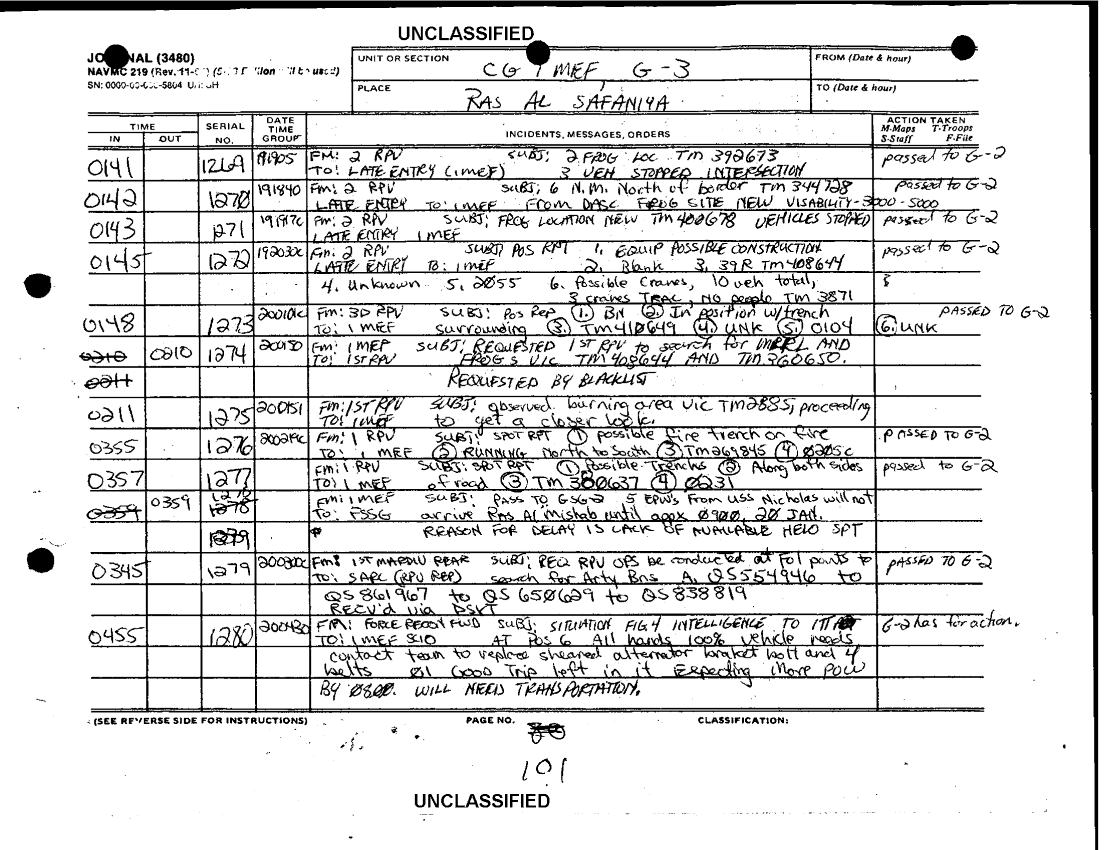 UNCLASSIFIED
JOURNAL (3480)
NAVMC 219 (Rev. 11-
SN: 0000-00-
UNIT OR SECTION
CG 1 MEF, G-3
FROM (Date & hour)
PLACE
RAS AL SAFANIYA
TO (Date & hour)
TIME
IN OUT
SERIAL NO.
DATE TIME GROUP
INCIDENTS, MESSAGES, ORDERS
ACTION TAKEN
M-Maps T-Troops
S-Staff F-File
0141 1269 191905 FM: 2 RPV SUBJ: 2 FROG LOC TM 392673 passed to G-2
TO: LATE ENTRY (1MEF) 3 VEH STOPPED INTERSECTION
0142 1270 191840 Fm: 2 RPV SUBJ: 6 N.M. North of border TM 344728 passed to G-2
LATE ENTRY TO: 1MEF FROM DASC FROG SITE NEW VISABILITY-3000-5000
0143 1271 191917c Fm: 2 RPV SUBJ: FROG LOCATION NEW TM 400678 VEHICLES STOPPED passed to G-2
LATE ENTRY 1MEF
0145 1272 192030c Fm: 2 RPV SUBJ: POS RPT 1. EQUIP POSSIBLE CONSTRUCTION passed to G-2
LATE ENTRY TO: 1MEF 2. Blank 3. 39R TM 408644
4. Unknown 5. 2055 6. Possible Cranes, 10 veh total,
3 cranes TRAC, NO people TM 3871
0148 1273 200101c Fm: 3D RPV SUBJ: Pos Rep (1.) BN (2.) In position w/trench PASSED TO G-2
TO: 1 MEF surrounding (3.) TM410649 (4.) UNK (5.) 0104 (6.) UNK
0210 0210 1274 200150 Fm: 1MEF SUBJ: REQUESTED 1ST RPV to search for MRRL AND
TO: 1ST RPV FROGS VIC TM 408644 AND TM 360650.
0211 REQUESTED BY BLACKLIST
0211 1275 200151 Fm: 1ST RPV SUBJ: observed burning area vic TM2885, proceeding
TO: 1MEF to get a closer look.
0355 1276 200219c Fm: 1 RPV SUBJ: SPOT RPT (1) possible fire trench on fire PASSED TO G-2
TO: 1 MEF (2) RUNNING North to South (3) TM269845 (4) 0205c
0357 1277 Fm: 1 RPV SUBJ: SPOT RPT (1) Possible Trenchs (2) Along both sides passed to G-2
TO: 1 MEF of road (3) TM 380637 (4) 0231
0359 0359 1278 1278 Fm: 1MEF SUBJ: PASS TO GSG-2 5 EPW's From USS Nicholas will not
TO: FSSG arrive Ras Al Mishab until apox 0900, 20 JAN.
1279 REASON FOR DELAY IS LACK OF AVAILABLE HELO SPT
0345 1279 200300c Fm: 1ST MARDIV REAR SUBJ: REQ RPV OPS be conducted at Fol points to PASSED TO G-2
TO: SARC (RPV REP) search for Arty Bns A. QS554946 to
QS 861967 to QS 650629 to QS 838819
RECV'd via DSVT
0455 1280 200430 FM: FORCE RECON FWD SUBJ: SITUATION FIG 4 INTELLIGENCE TO ITT G-2 has for action.
TO: 1MEF SIO AT POS 6 All hands 100% vehicle needs
contact team to replace sheared alternator braket bolt and 4
belts 01 Good Trip left in it Expecting More POW
BY 0800. WILL NEED TRANSPORTATION.
(SEE REVERSE SIDE FOR INSTRUCTIONS)
PAGE NO.
CLASSIFICATION:
101
UNCLASSIFIED